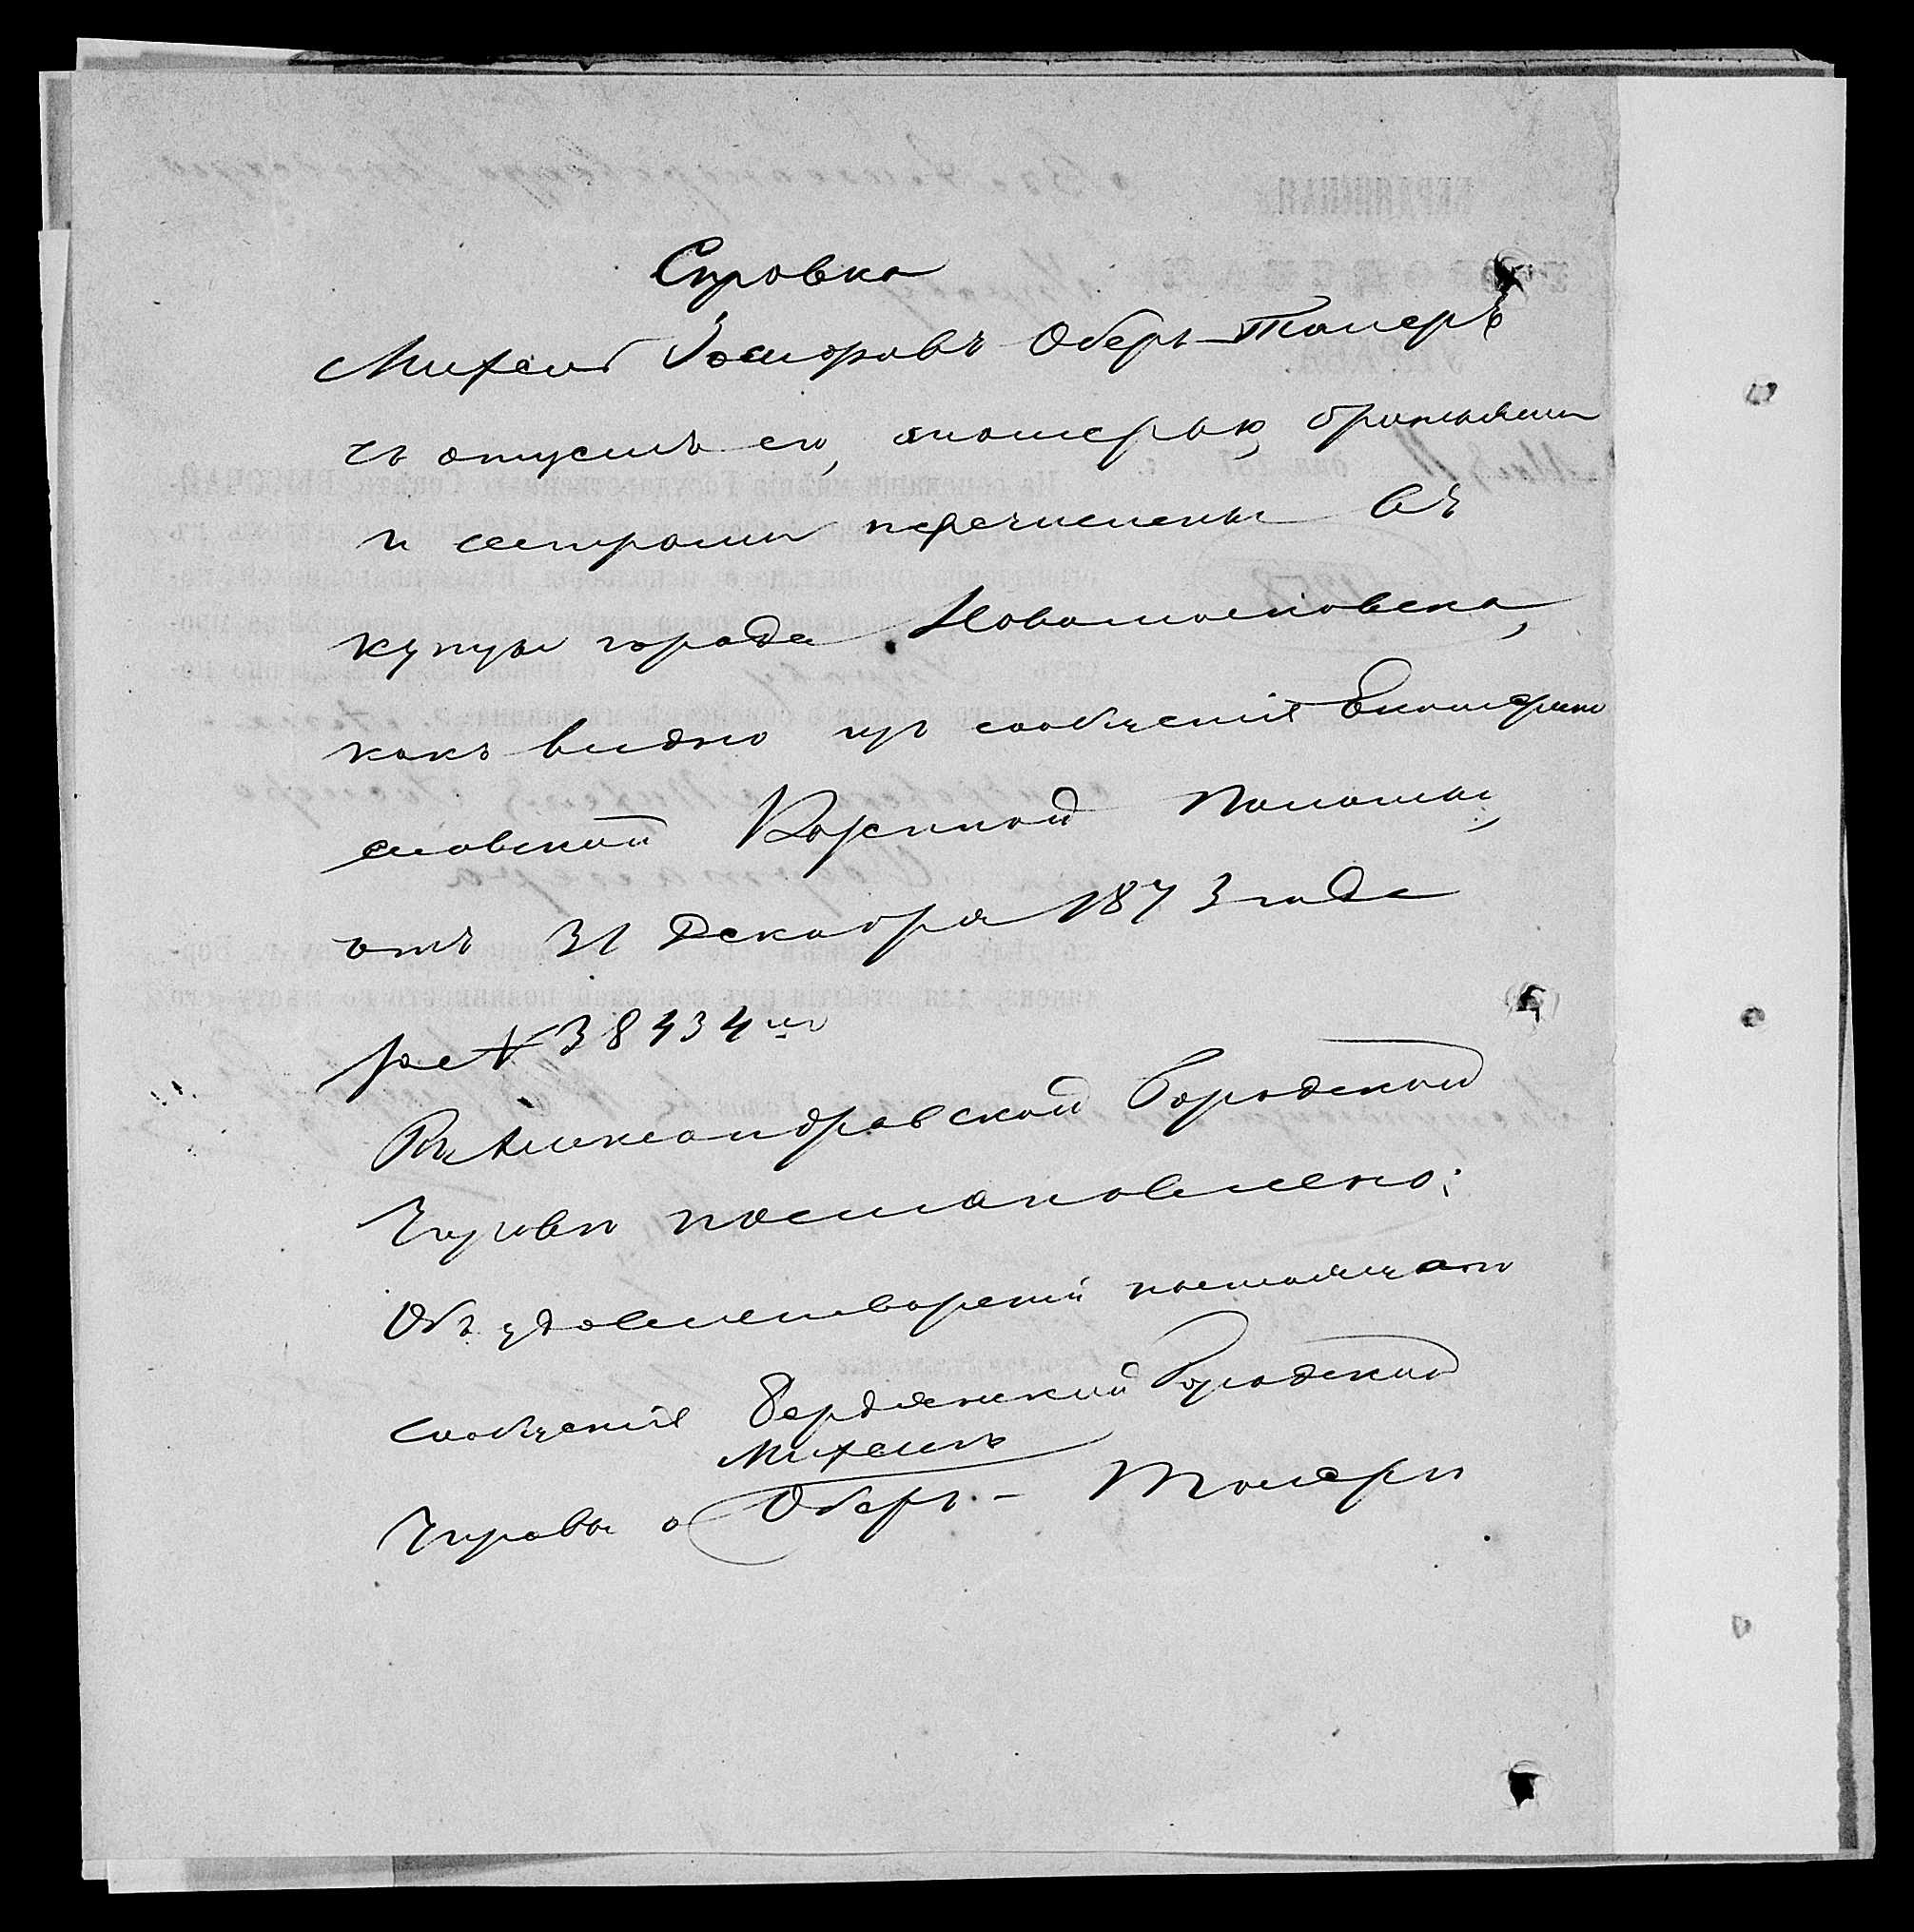 Справка
Михель Іосифовъ Оберъ-Талеръ
съ отцемъ его, матерью, братьями
и сестрами перечислены въ
купцы города Новомосковска,
какъ видно изъ сообщенія Екатерино
славской Казенной Палаты,
отъ 31 Декабря 1873 года
за № 38434мъ
Въ Александровской Городской
Управѣ постановлено:
Объ удовлетвореніи настоящаго
сообщенія Бердянской Городской
Михель
Управы о Оберъ-Талерѣ